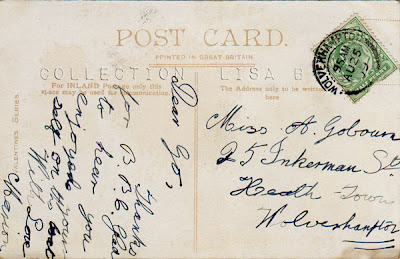 POST CARD.
PRINTED IN GREAT BRITAIN
COLLECTION LISA B
For INLAND Postage only this
space may be used for Communication
The Address only to be written
here
VALENTINES SERIES
WOLVERHAMPTON
Dear Go,
Thanks
for P.P.C. Glad
to hear you
enjoyed your
self on the boat
With Love
Miss A. Gobourn
25 Inkerman St
Heath Town
Wolverhampton